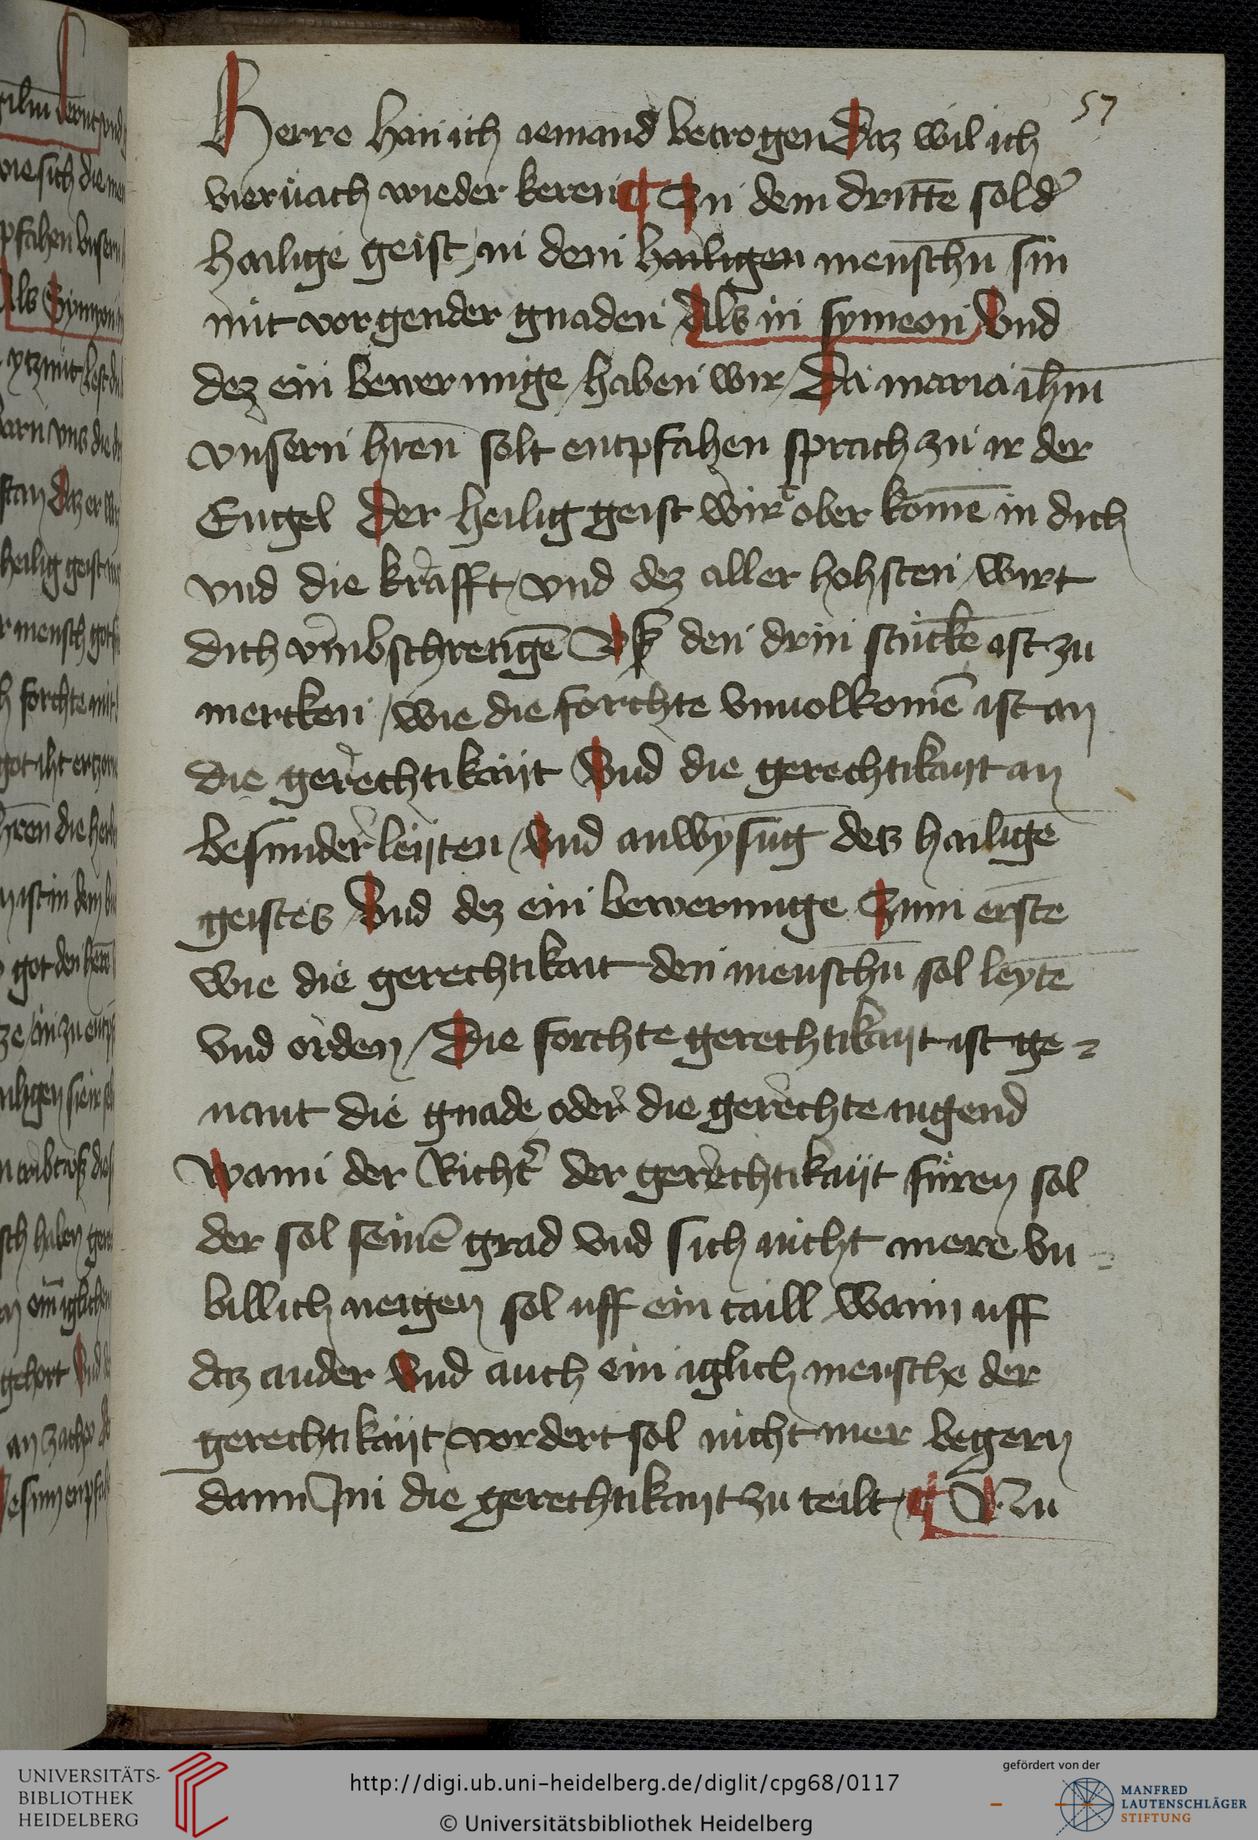 57
Herre Han ich iemand betrogen Daz wil ich
vieruach wieder keren ¶ Zu dem dritte͞ sol d͛
hailige geist, in dem hailigen mensch͞n sin
mit vorgender gnaden Als in symeon Vnd
dez ein bewernige / haben wir / Da maria ih͞m
vnsern hr͞en solt entpfahen sprach zu ir der
Engel Der heilig geist wirt ober kome͞ in dich
vnd die krafft / vnd dez aller hohsten / wirt
dich vmbschretige͞ Vß den drin stucke͞ ist zu
mercken / wie die forchte vnuolkome͞ ist an
die gerechtikaijt Vnd die gerechtikaijt an
besunder leijten / Vnd anwysu͞g detz hailige͞
geistes Vnd dez ein bewernuge Zum erste͞
wie die gerechtikait den mensch͞n sol leyte͞
vnd orden / Die forchte gerechtikaijt ist ge=
nant die gnade oder die gerechte tugend
wann der Richt͛ der gerechtikaijt füren sol
der sol seine͞ grad vnd sich nicht mere vn=
billich neigen sol uff ein taill wann uff
daz ander Vnd auch ein iglich mensche der
gerechtikaijt vordert sol nicht mer begern
dann Im die gerechtikaijt zu teilt / ¶ Nu
UNIVERSITÄTS-
BIBLIOTHEK
HEIDELBERG
http://digi.ub.uni-heidelberg.de/diglit/cpg68/0117
© Universitätsbibliothek Heidelberg
gefördert von der
MANFRED
LAUTENSCHLÄGER
STIFTUNG